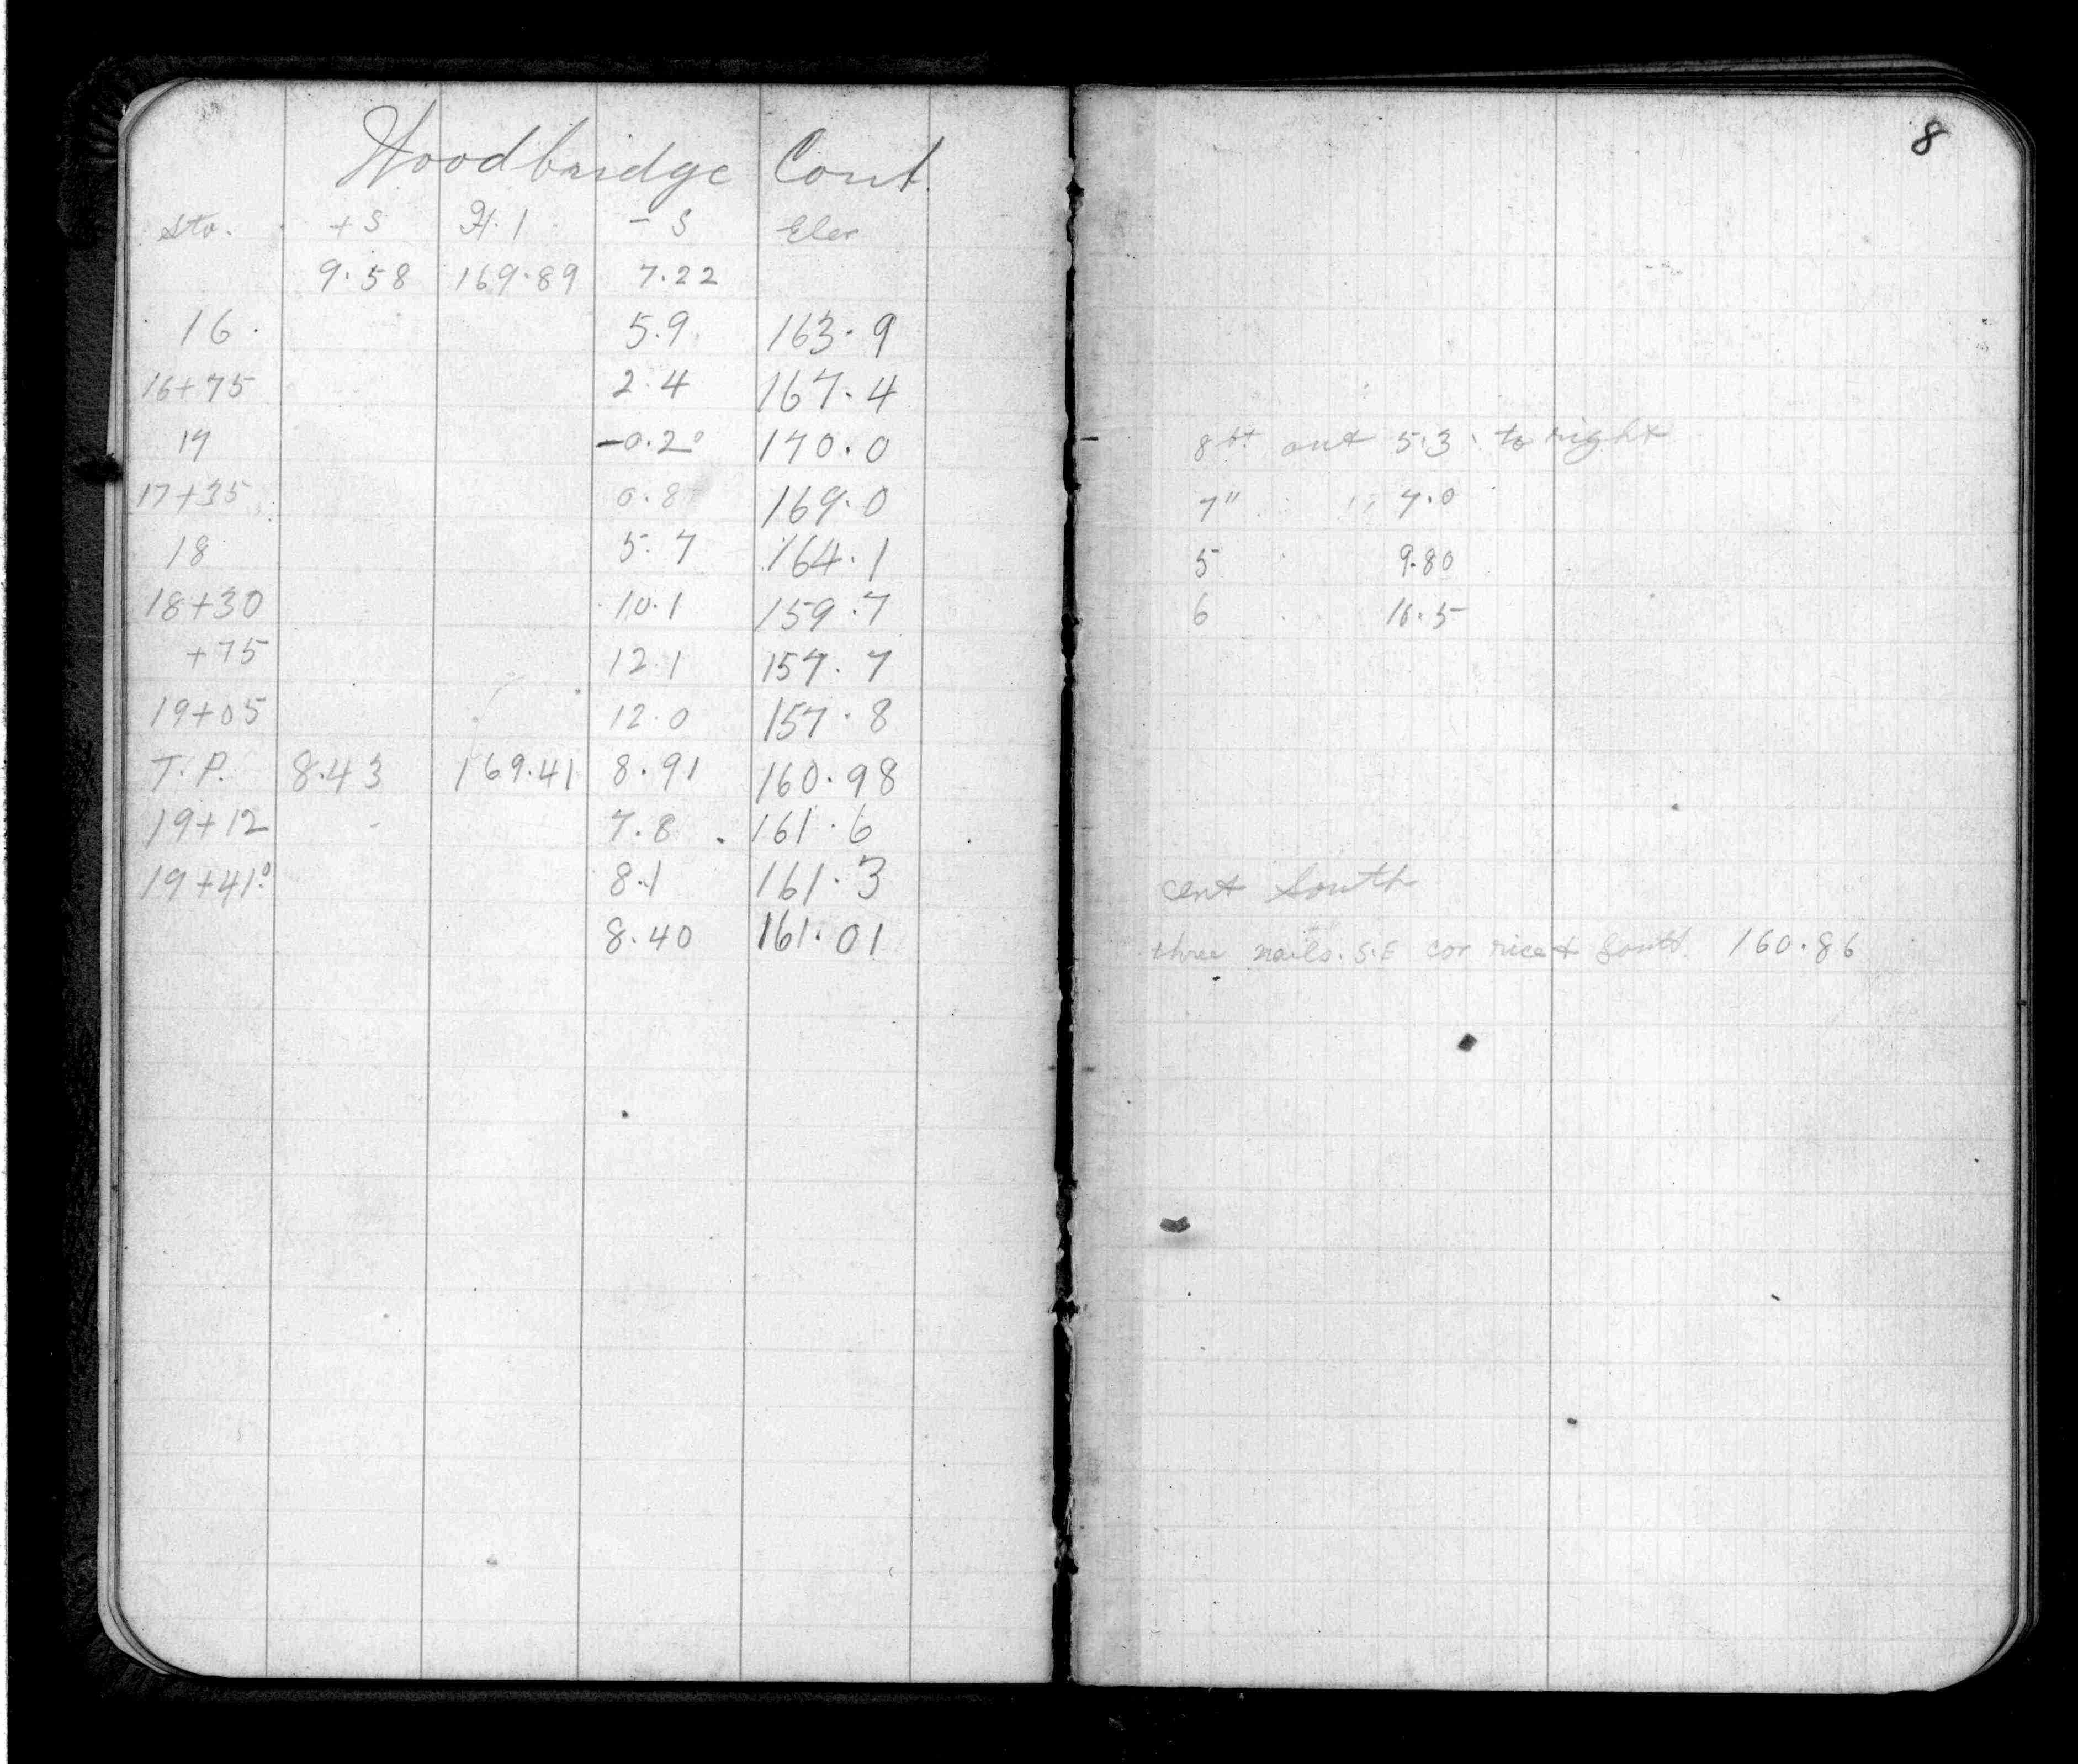 Woodbridge Cont.
Sta. +S H.I - S Elev
9.58 169.89 7.22
16 5.9 163.9
16+75 2.4 167.4
17 -0.2° 170.0
17+35 0.8 169.0
18 5.7 164.1
18+30 10.1 159.7
+75 12.1 157.7
19+05 12.0 157.8
T.P. 8.43 169.41 8.91 160.98
19+12 7.8 161.6
19+41° 8.1 161.3
8.40 161.01
8
8 ft out 5.3 to right
7 " " 7.0
5 9.80
6 16.5
cent South
three nails. S.E cor rice & South. 160.86